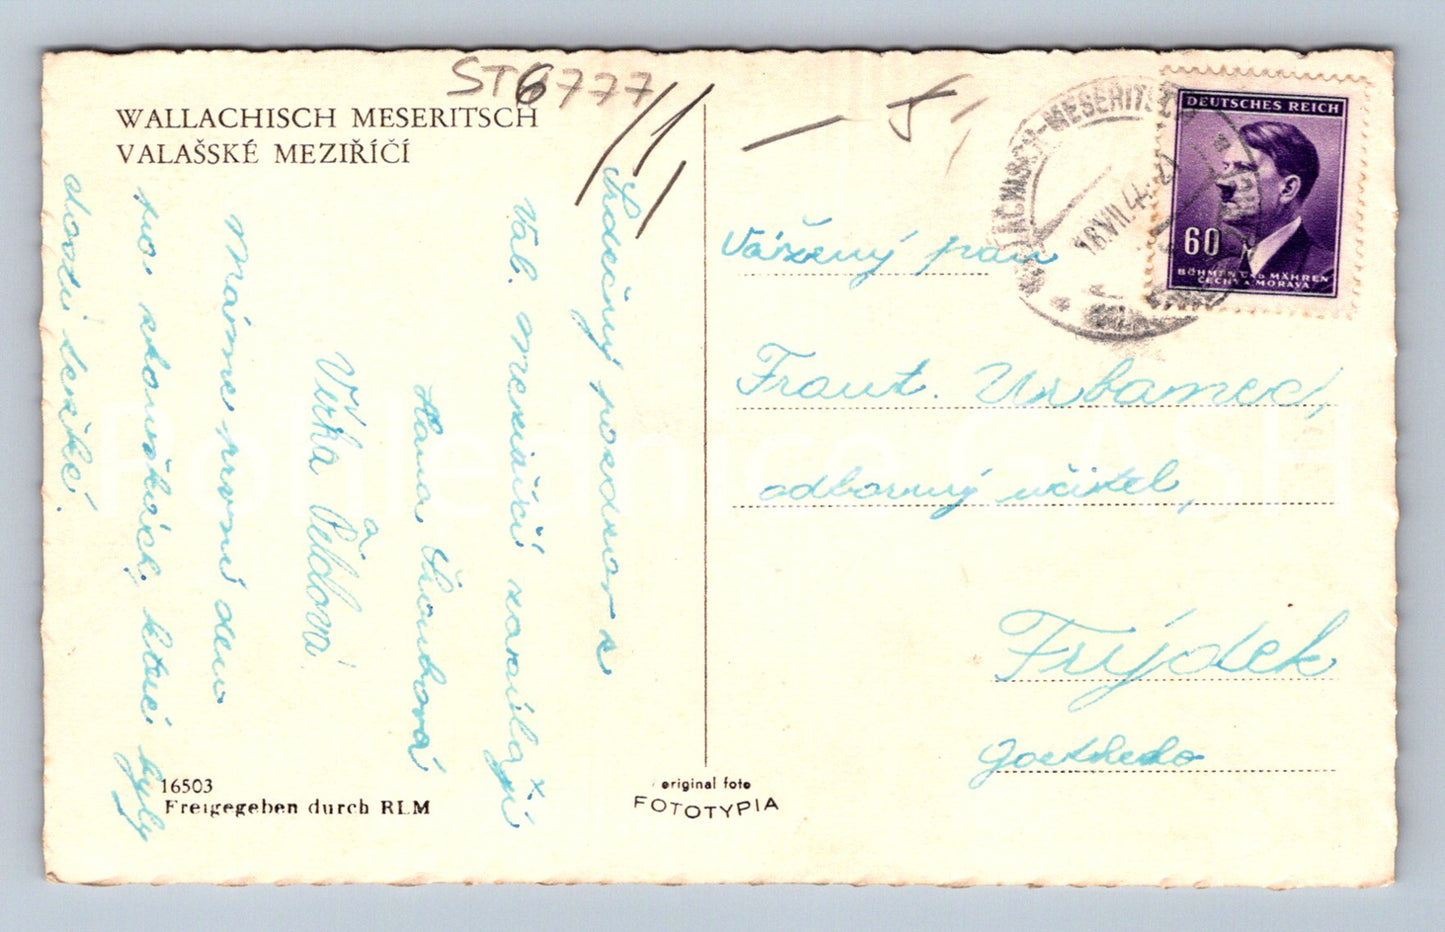 ST6777
WALLACHISCH MESERITSCH
VALAŠSKÉ MEZIŘÍČÍ
Srdečný pozdrav z
Val. meziříčí zasílají
Hana
a
Věrka Pěldová
Máme první den
po zkouškách, které byly
dosti težké.
16503
Freigegeben durch RLM
original foto
FOTOTYPIA
DEUTSCHES REICH
60
BÖHMEN UND MÄHREN
ČECHY A MORAVA
18.VII.44
Vážený pan
Frant. Urbanec,
odborný učitel,
Frýdek
Pohlednice GASH